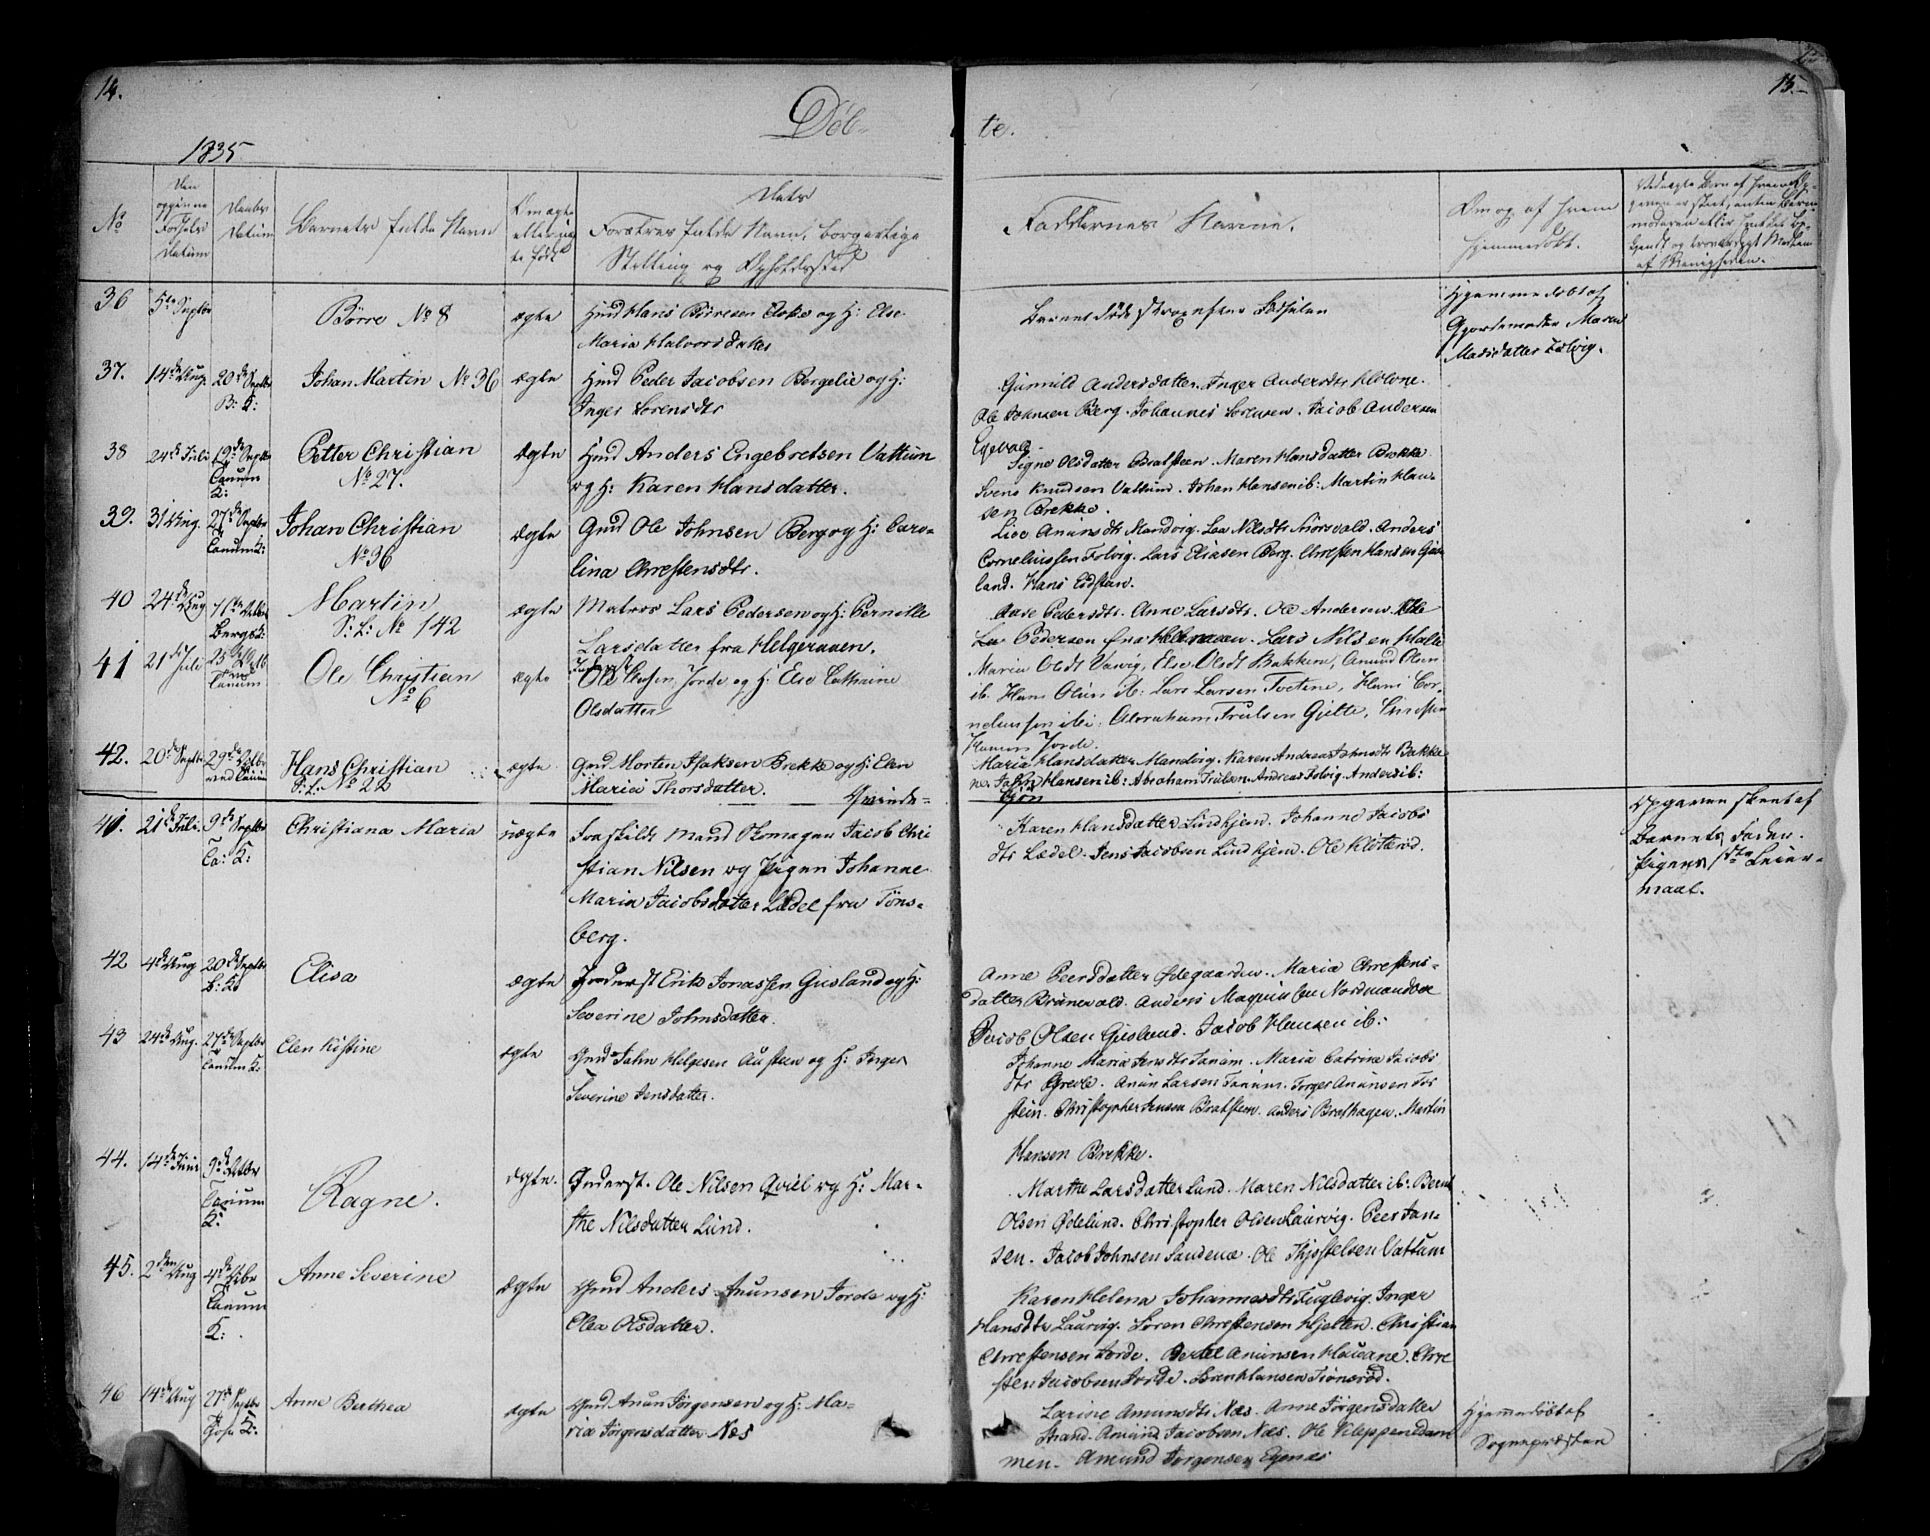 14.
15.
Döb-
te.
1835
No
Den opgivne Fødsels Datum
Daabs Datum
Barnets fulde Navn
Om ægte eller uægte født
Dets Forældres fulde Navn, borgerlige Stilling og Opholdssted
Faddernes Navne.
Om og af hvem hjemmedöbt.
36
5te Septbr
Børre No 8
ægte
Gmd Hans Börresen og H: Else
Maria Halvorsdatter
Hjemmedöbt af
Gjordemoder Maren
Madsdatter Folvig.
37.
14de Aug.
20de Septbr
B: K:
Johan Martin No 36
ægte
Hmd Peder Jacobsen Bergelie og H:
Inger Sorensdtr
Gunnild Andersdatter. Inger Andersdtr Klolone.
Ole Johnsen Berg. Johannes Sorensen. Jacob Andersen
Egevald
38
24de Juli
19de Septbr
Tanum
K:
Petter Christian
No 27.
ægte
Hmd Anders Engebretsen Vattum
og H: Karen Hansdatter.
Signe Olsdatter Bratsteen. Maren Hansdatter Brekke
Svens Knudsen Vattum. Johan Hansen ib: Martin Han-
sen Brekke.
39.
31 Aug.
27de Septbr
Tanum K:
Johan Christian
No 36
ægte
Gmd Ole Johnsen Berg og H: Caro-
lina Chrestensdtr.
Live Anunsdtr Mandvig. Lea Nilsdtr Snörsvald. Anders
Corneliussen Folvig. Lars Eliasen Berg. Chresten Hansen Gjer-
land. Hans Eidsten.
40
24de Aug
Bergs K:
Martin
S: L: No 142
ægte
Matros Lars Pedersen og H: Pernille
Larsdatter fra Helgeraaen.
Aase Pedersdtr. Anne Larsdtr. Ole Andersen. Ole
Pedersen fra Helgeraaen. Lars Nilsen Halle
41
21de Juli
Tanum
Ole Christian
No 6
ægte
Olsen Jorde og H: Else Cathrine
Olsdatter
Maria Olsdt Varvig, Else Olsdt Bakkene, Amund Olsen
ib. Hans Olsen ib: Lars Larsen Tvetene, Hans Cor-
neliussen ibi: Abraham Trulsen Gjelte, Christen
Hansen Jorde.
42.
20de Septbr
29de Octbr
ved Tanum
Hans Christian
S: L: No 22
ægte
Gmd Morten Isaksen Brekke og H: Elen
Maria Thorsdatter.
Maria Hansdatter Mandvig. Karen Andrea Johnsdtr Bakke
ne. John Hansen ib: Abraham Trulsen. Andreas Folvig. Anders ib:
Qvinde-
kjön
41.
21de Juli
9de Septbr
Ta: K:
Christiana Maria
uægte
Fraskildt Mand Skomager Jacob Chri
stian Nilsen og Pigen Johanne
Maria Jacobsdatter Lædel fra Töns-
berg.
Karen Hansdatter Lindhjem. Johanne Jacobs
dtr Lædel. Jens Jacobsen Lindhjem. Ole Klötteröd.
Opgaven skeet af
Barnets Fader.
Pigens 1ste Leier-
maal.
42
4de Aug
20de Septbr
B: K:
Elisa
ægte
Inderst Erik Jonassen Gusland og H:
Severine Johnsdatter.
Anne Peersdatter Ødegaarden. Maria Chrestens-
datter Brünevald. Anders Magnusen Nordmandoe
Jacob Olsen Gusland. Jacob Hansen ib:
43
24de Aug.
27de Septbr
Tanum K:
Elen Kistine
ægte
Gmd John Helgesen Austeen og H: Inger
Severine Jensdatter.
Johanne Maria Jensdtr Tanum. Maria Catrine Jacobs
dtr Grevle. Anun Larsen Tanum. Torger Anunsen Tor
stein. Christopher Jensen Bratsteen. Anders Breshagen. Martin
Hansen Brekke.
44.
14de Juni
9de Octbr
Tanum
K:
Ragne.
ægte.
Inderst. Ole Nilsen Qviel og H: Mar-
the Nilsdatter Lund.
Marthe Larsdatter Lund. Maren Nilsdatter ib: Bernt
Olsen Ødelund. Christopher Olsen Laurvig. Peer Jan-
sen. Jacob Johnsen Sandenæ. Ole Thjostelsen Vattum
45.
2den Aug
4de Octbr
Tanum
K:
Anne Severine
ægte
Gmd Anders Anunsen Jorde og H:
Olea Olsdatter.
Karen Helena Johannesdtr Fuglevig. Inger
Hansdtr Laurvig. Sören Chrestensen Hjelten. Christian
Chrestensen Jorde. Bertel Anunsen Haugane. Chre
sten Jacobsen Jorde. Sören Hansen Tiönröd.
46
14de Aug
27de Septbr
K:
Anne Berthea
ægte
Gmd Anun Jörgensen og H: Ma-
ria Jörgensdatter Næs
Larine Amunsdtr Næs. Anne Jörgensdatter
Strand. Amund Jacobsen Næs. Ole Kleppenedam
men. Amund Jörgensen Egenes
Hjemmedöbt af
Sognepræsten